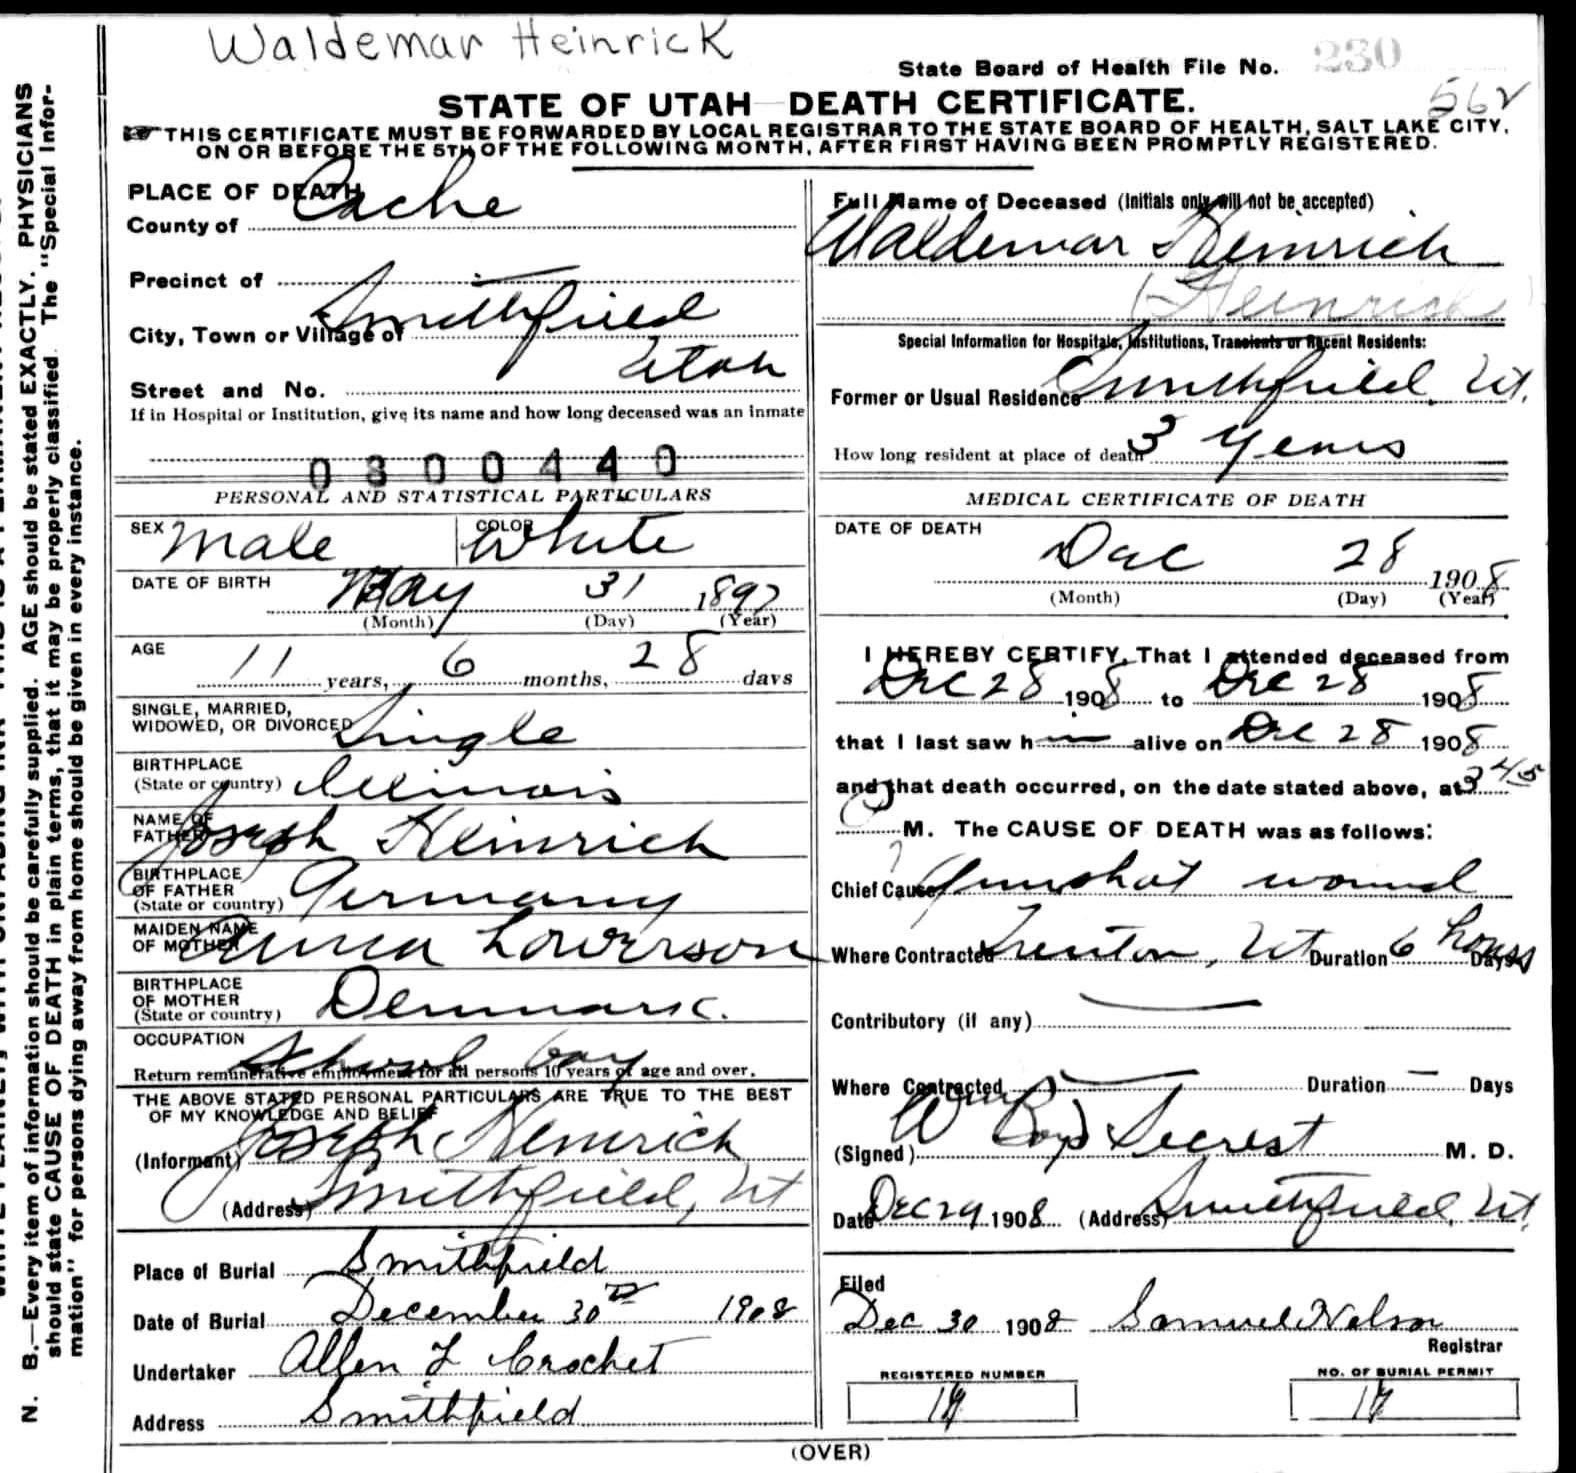 Waldemar Heinrick
State Board of Health File No. 230
562
STATE OF UTAH DEATH CERTIFICATE.
THIS CERTIFICATE MUST BE FORWARDED BY LOCAL REGISTRAR TO THE STATE BOARD OF HEALTH, SALT LAKE CITY,
ON OR BEFORE THE 5TH OF THE FOLLOWING MONTH, AFTER FIRST HAVING BEEN PROMPTLY REGISTERED.
PLACE OF DEATH
County of Cache
Precinct of
City, Town or Village of Smithfield
Utah
Street and No.
If in Hospital or Institution, give its name and how long deceased was an inmate
0300440
PERSONAL AND STATISTICAL PARTICULARS
SEX Male COLOR White
DATE OF BIRTH May 31 1897
(Month) (Day) (Year)
AGE 11 years, 6 months, 28 days
SINGLE, MARRIED,
WIDOWED, OR DIVORCED Single
BIRTHPLACE
(State or country) Illinois
NAME OF
FATHER Joseph Heinrich
BIRTHPLACE
OF FATHER
(State or country) Germany
MAIDEN NAME
OF MOTHER Anna Lowerson
BIRTHPLACE
OF MOTHER
(State or country) Denmark.
OCCUPATION School boy
Return remunerative employment for all persons 10 years of age and over.
THE ABOVE STATED PERSONAL PARTICULARS ARE TRUE TO THE BEST
OF MY KNOWLEDGE AND BELIEF
(Informant) Joseph Heinrich
(Address) Smithfield, Ut
Place of Burial Smithfield
Date of Burial December 30th 1908
Undertaker Allen L Crochet
Address Smithfield
Full Name of Deceased (Initials only will not be accepted)
Waldemar Heinrich
(Heinrich)
Special Information for Hospitals, Institutions, Transients or Recent Residents:
Former or Usual Residence Smithfield, Ut.
How long resident at place of death 3 years
MEDICAL CERTIFICATE OF DEATH
DATE OF DEATH
Dec 28 1908
(Month) (Day) (Year)
I HEREBY CERTIFY, That I attended deceased from
Dec 28 1908 to Dec 28 1908
that I last saw him alive on Dec 28 1908
and that death occurred, on the date stated above, at 3 45
M. The CAUSE OF DEATH was as follows:
Chief Cause Gunshot wound
Where Contracted Trenton, Ut Duration 6 hours Days
Contributory (if any)
Where Contracted Duration — Days
(Signed) Wm Boyd Secrest M. D.
Date Dec 29 1908 (Address) Smithfield, Ut.
Filed
Dec 30 1908 Samuel Nelson
Registrar
REGISTERED NUMBER
NO. OF BURIAL PERMIT
(OVER)
N. B.—Every item of information should be carefully supplied. AGE should be stated EXACTLY. PHYSICIANS
should state CAUSE OF DEATH in plain terms, that it may be properly classified. The "Special Infor-
mation" for persons dying away from home should be given in every instance.